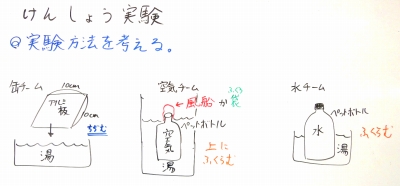 けんしょう実験
Q実験方法を考える。
缶チーム
10cm
アルミ板
10cm
ちぢむ
湯
空気チーム
風船か
ふくろ
袋
ペットボトル
空気
湯
上に
ふくらむ
水チーム
ペットボトル
水
湯
ふくらむ